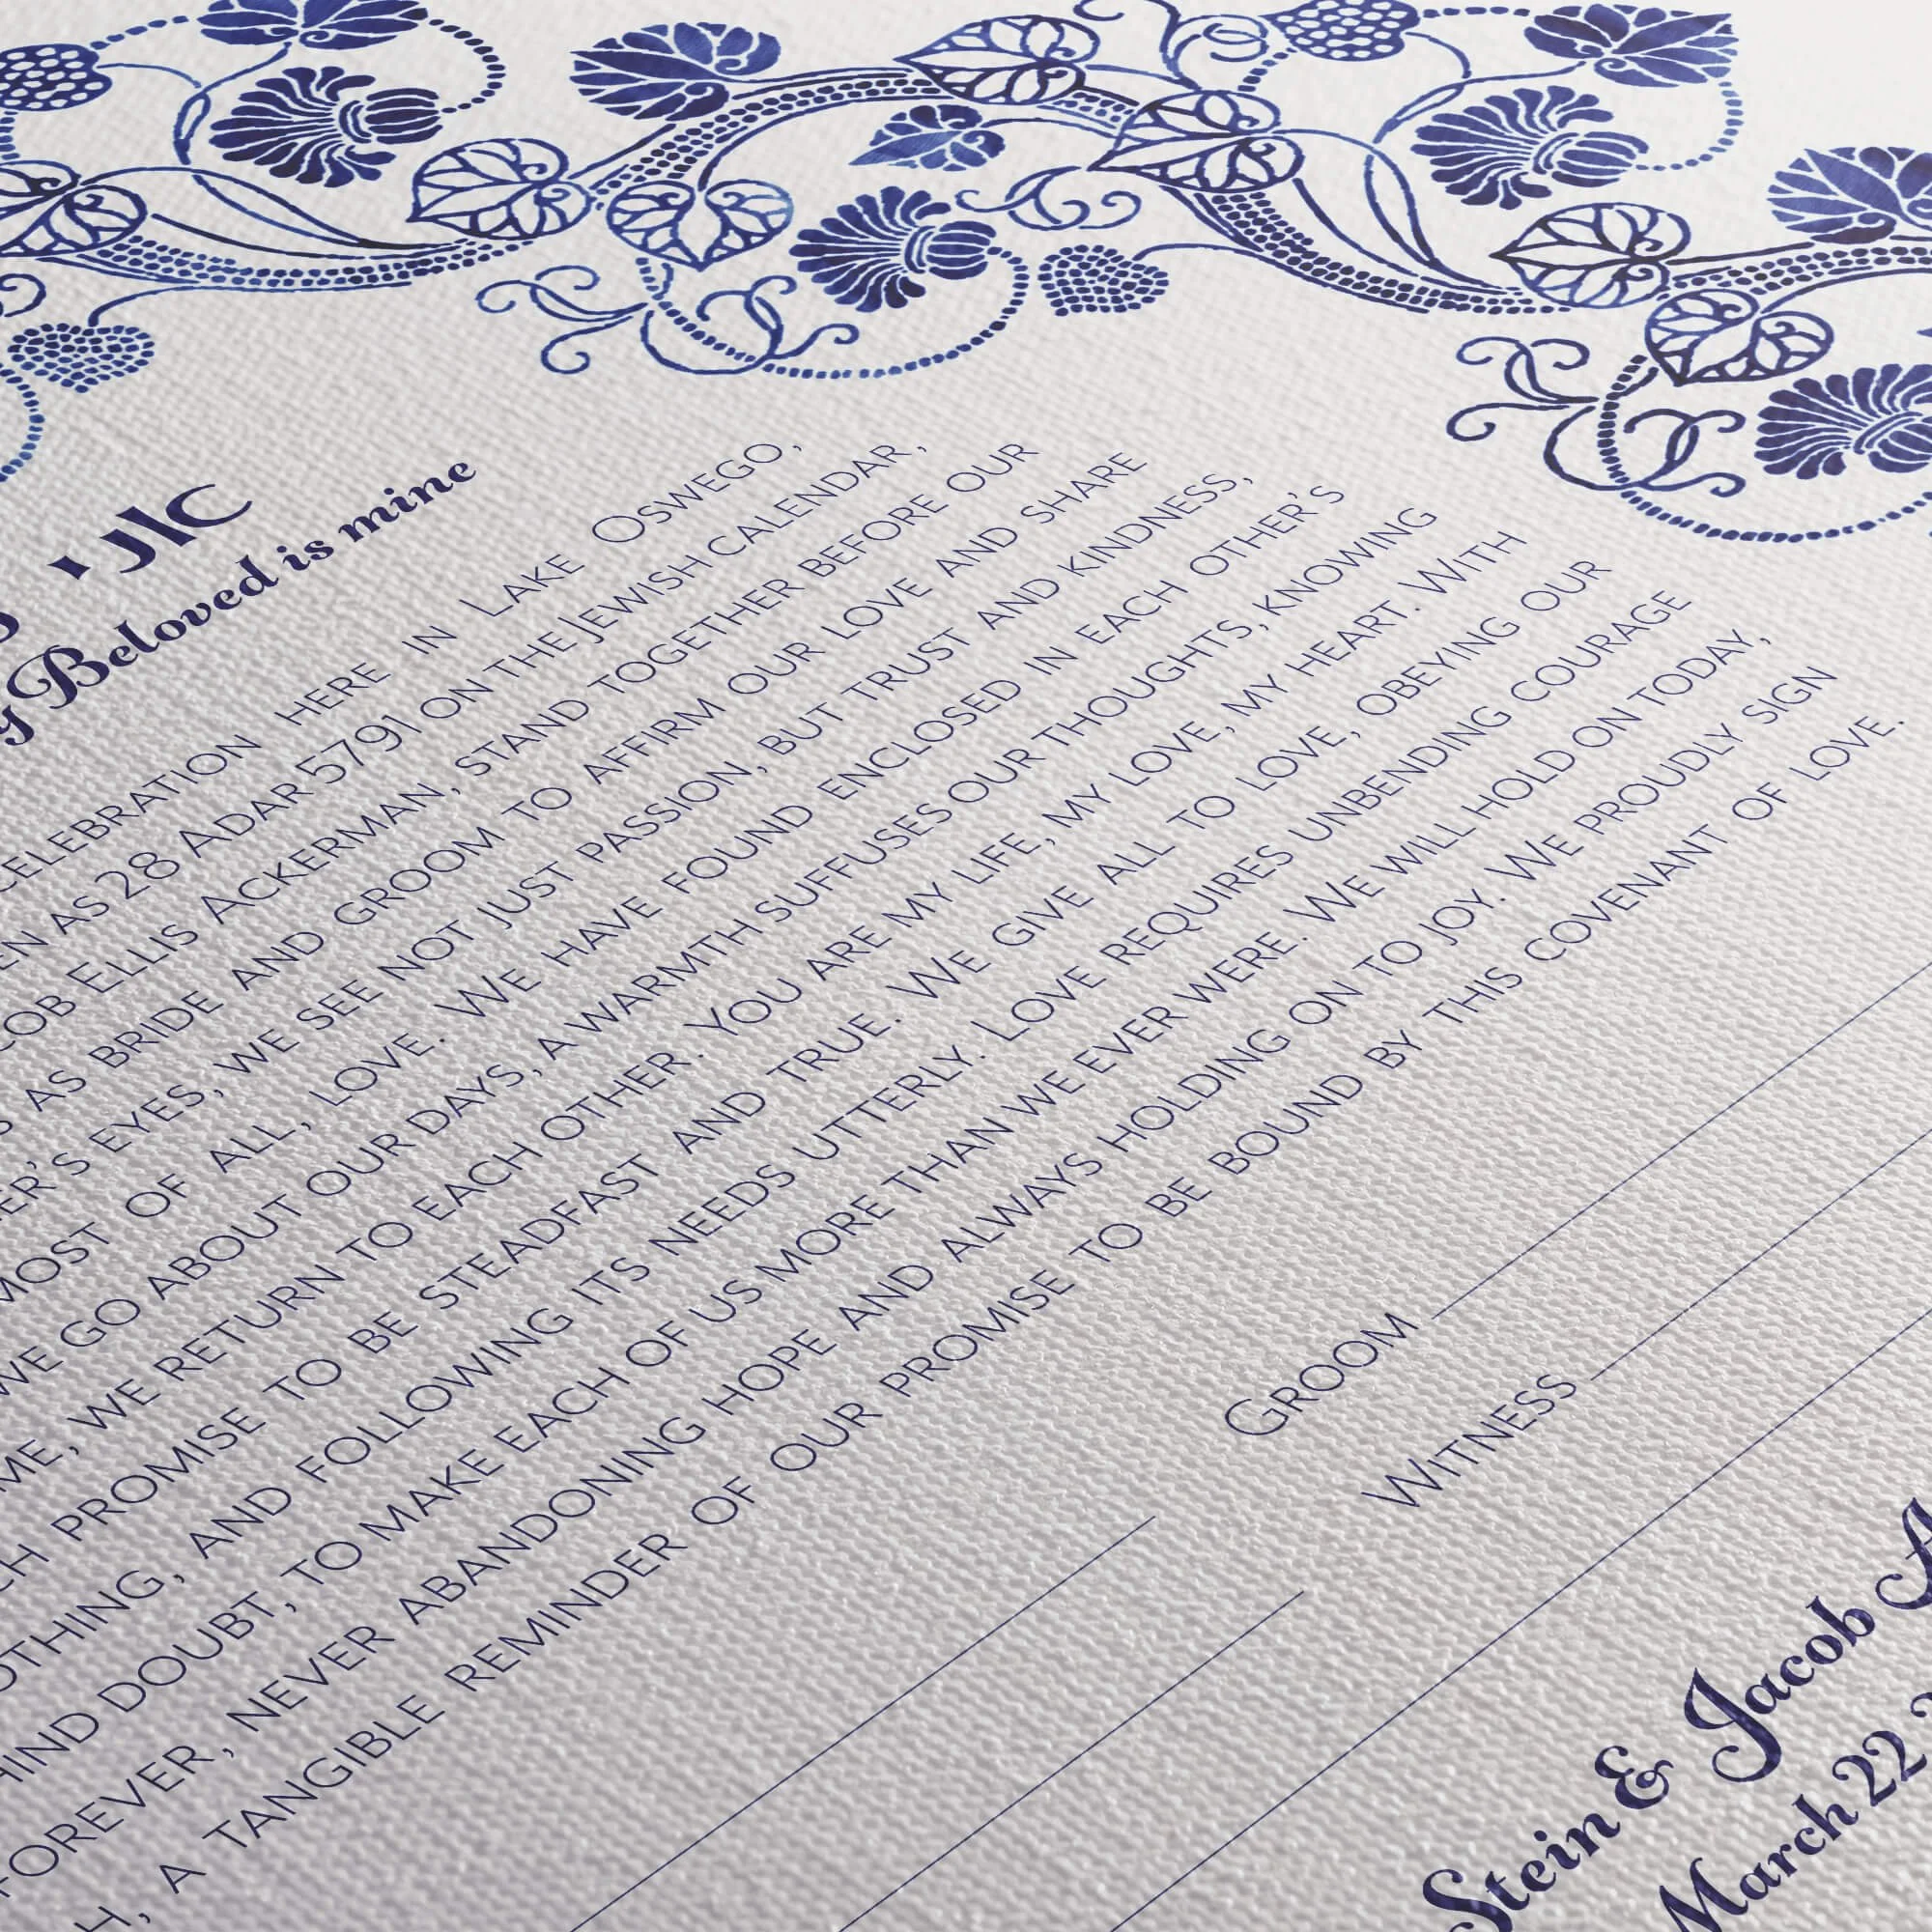 y Beloved is mine
CELEBRATION HERE IN LAKE OSWEGO,
EN AS 28 ADAR 5791 ON THE JEWISH CALENDAR,
COB ELLIS ACKERMAN, STAND TOGETHER BEFORE OUR
S AS BRIDE AND GROOM TO AFFIRM OUR LOVE AND SHARE
ER'S EYES, WE SEE NOT JUST PASSION, BUT TRUST AND KINDNESS,
MOST OF ALL, LOVE. WE HAVE FOUND ENCLOSED IN EACH OTHER'S
WE GO ABOUT OUR DAYS, A WARMTH SUFFUSES OUR THOUGHTS, KNOWING
ME, WE RETURN TO EACH OTHER. YOU ARE MY LIFE, MY LOVE, MY HEART. WITH
CH PROMISE TO BE STEADFAST AND TRUE. WE GIVE ALL TO LOVE, OBEYING OUR
OTHING, AND FOLLOWING ITS NEEDS UTTERLY. LOVE REQUIRES UNBENDING COURAGE
HIND DOUBT, TO MAKE EACH OF US MORE THAN WE EVER WERE. WE WILL HOLD ON TODAY,
FOREVER, NEVER ABANDONING HOPE AND ALWAYS HOLDING ON TO JOY. WE PROUDLY SIGN
H, A TANGIBLE REMINDER OF OUR PROMISE TO BE BOUND BY THIS COVENANT OF LOVE.
GROOM
WITNESS
Stein & Jacob A
March 22